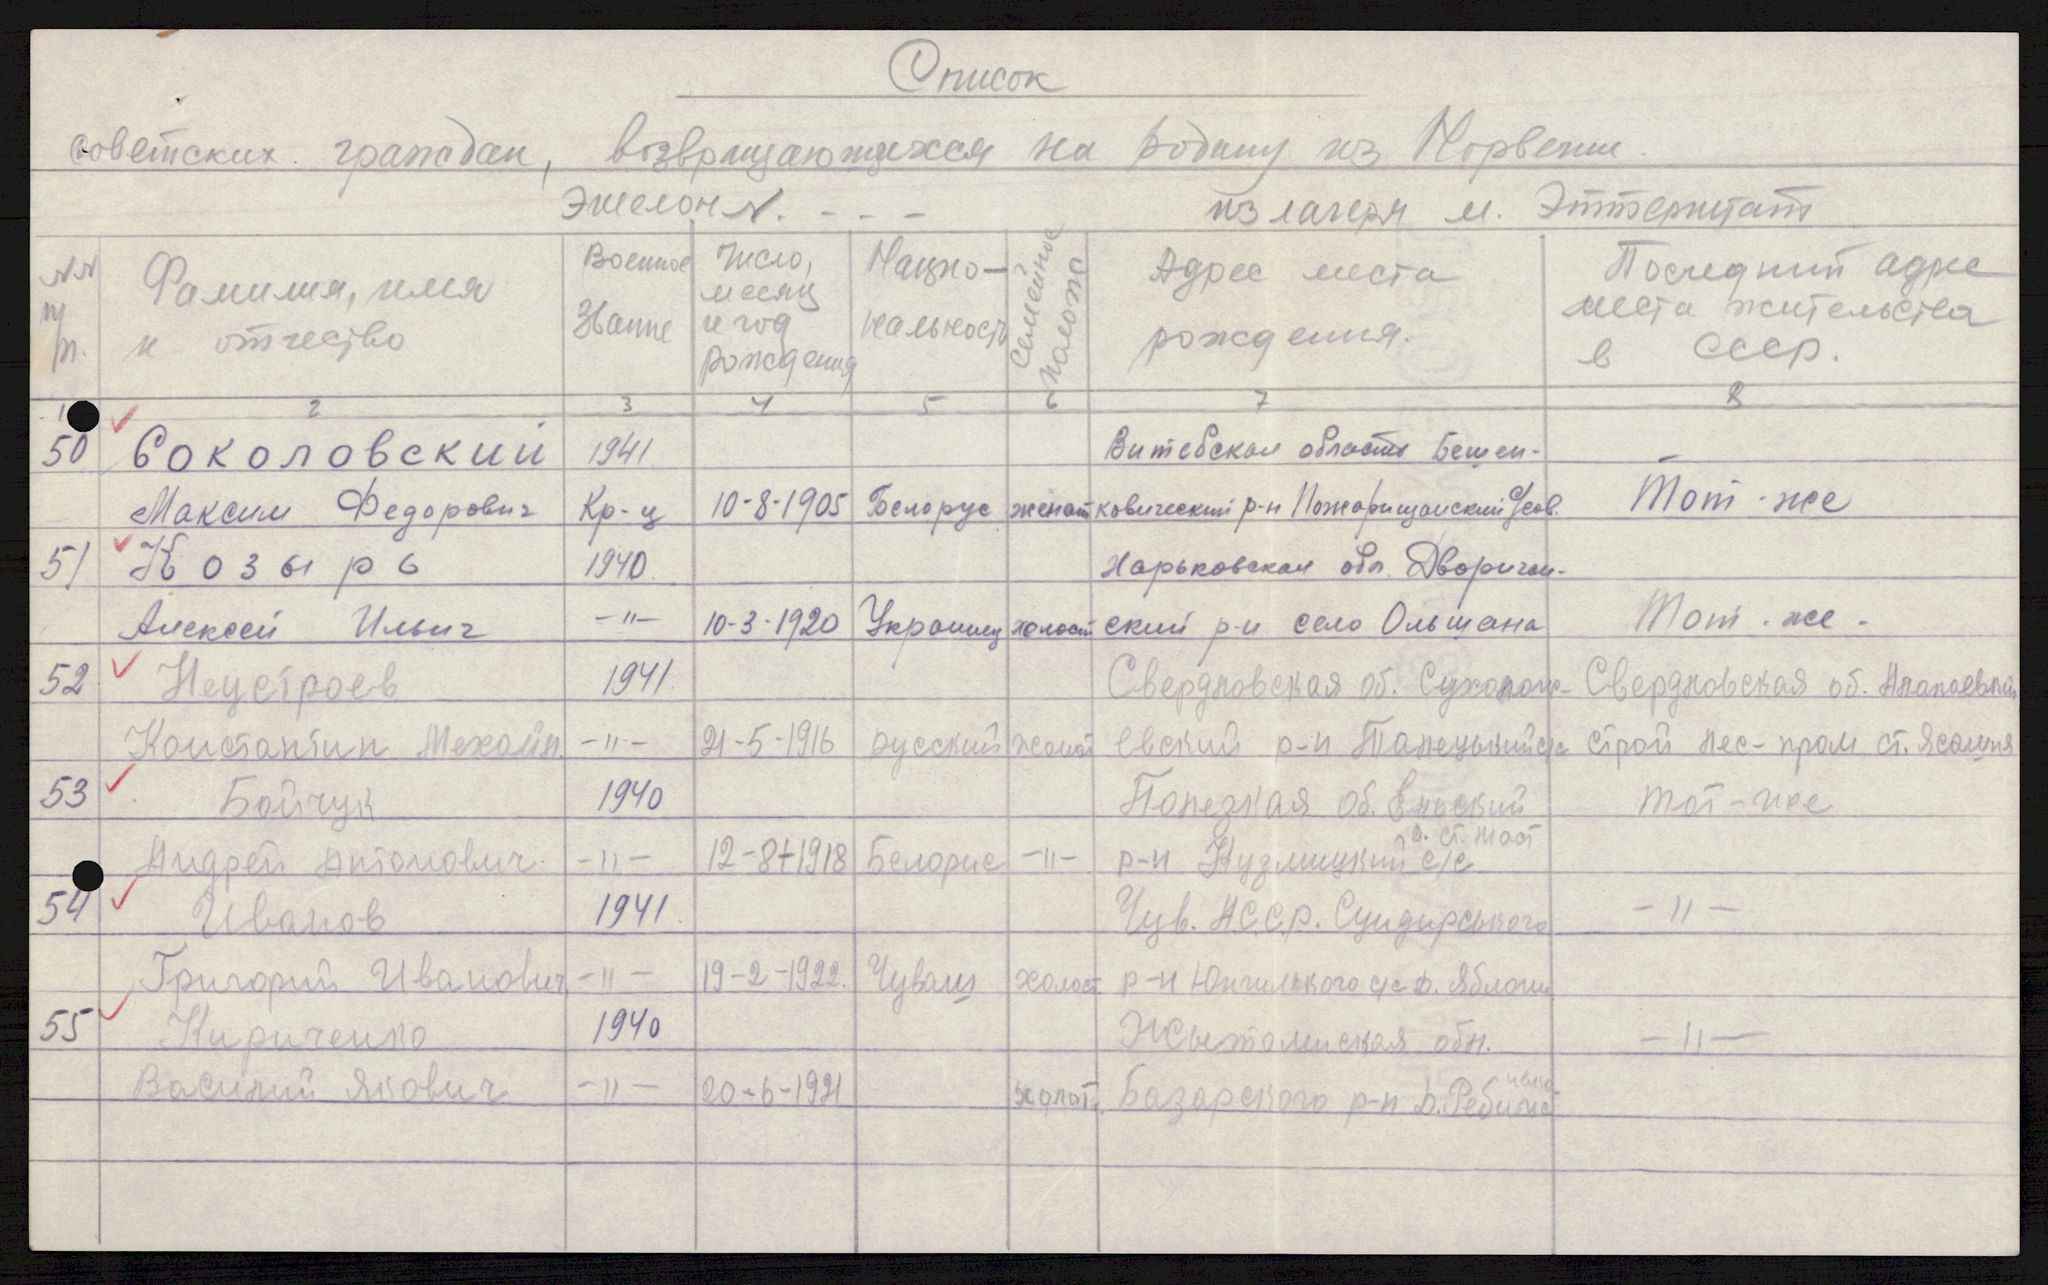 Список
советских граждан, возвращающихся на родину из Норвегии.
Эшелон N. - - -
из лагеря м. Эттерштат
NN п/п.
Фамилия, имя и отчество
Военное звание
Число, месяц и год рождения
Нацио-нальность
Семейное полож
Адрес места рождения.
Последний адрес места жительства в СССР.
1 2 3 4 5 6 7 8
50 Соколовский 1941 Витебская область Бешен-
Максим Федорович Кр-ц 10-8-1905 Белорус женат ковический р-н Пожарищанский с/сов. Тот-же
51 Козырь 1940. Харьковская обл. Дворичан-
Алексей Ильич -"- 10-3-1920 Украинец холост ский р-н село Ольшана Тот-же-
52 Неустроев 1941. Свердловская об. Сухолож- Свердловская об. Алапаевский
Константин Мехайл. -"- 21-5-1916 русский холост евский р-н с/с строй лес-пром ст. Ясашня
53 Бойчук 1940 об. тот-же
Андрей Антонович. -"- 12-8-1918 Белорис -"- р-н Кузмицкий с/с
54 Иванов 1941. Чув. А.С.С.р. Сундирського -"-
Григорий Иванович -"- 19-2-1922. Чуваш холост р-н с/с д.
55 Кириченко 1940 Жытомиская обл. -"-
Василий Якович -"- 20-6-1921 холост. Базарского р-н д.